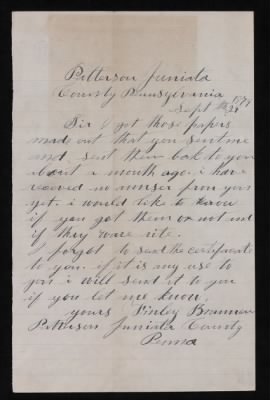 Patterson Juniata
County Pennsylvania
Sept the 21
Sir I got those papers
mad out that you sent me
and sent them back to you
about a month ago. i have
receved no anser from you
yet. i would like to know
if you got them or not and
if they ware rite.
I forgot to send the certificate
to you. if it is any use to
you i will send it to you
if you let me know.
yours Finley Brannen
Patterson Juniata County
Penna